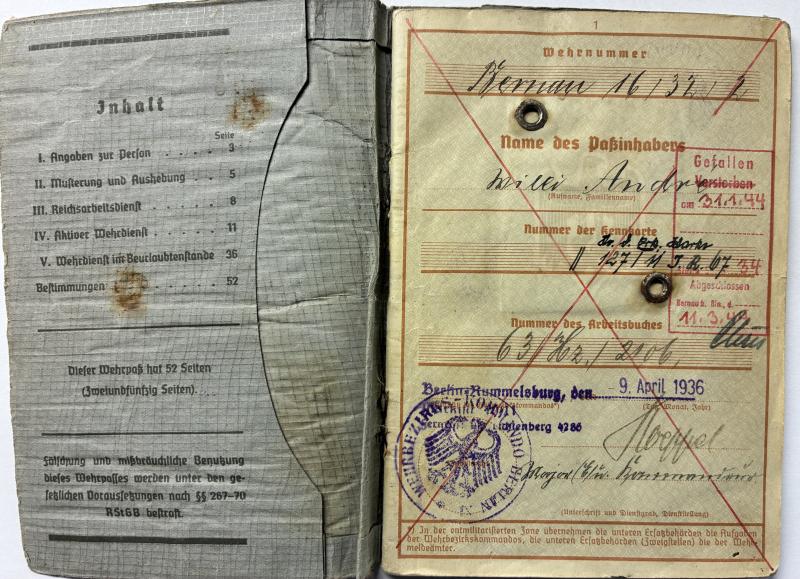 Inhalt
Seite
I. Angaben zur Person . . . . . 3
II. Musterung und Aushebung . . . . 5
III. Reichsarbeitsdienst . . . . 8
IV. Aktiver Wehrdienst . . . . 11
V. Wehrdienst im Beurlaubtenstande 36
Bestimmungen . . . . . 52
Dieser Wehrpaß hat 52 Seiten
(Zweiundfünfzig Seiten).
Fälschung und mißbräuchliche Benutzung
dieses Wehrpasses werden unter den ge-
setzlichen Voraussetzungen nach §§ 267-70
RStGB bestraft.
1
Wehrnummer
Bernau 16/32/2
Name des Paßinhabers
Willi André
(Rufname, Familienname)
Gefallen
Verstorben
am 31.1.44
Nummer der Kennkarte
127/ J.R. 67
Abgeschlossen
Bernau b. Bln., d.
11.3.
Nummer des Arbeitsbuches
63/Hz./2106.
Berlin-Rummelsburg, den 9. April 1936
(Tag, Monat, Jahr)
Lichtenberg 4286
WEHRBEZIRKSKOMMANDO BERLIN
Hoeppel
Major u. Kommandeur
(Unterschrift und Dienstgrad, Dienststellung)
*) In der entmilitarisierten Zone übernehmen die unteren Ersatzbehörden die Aufgaben
der Wehrbezirkskommandos, die unteren Ersatzbehörden (Zweigstellen) die der Wehr-
meldeämter.